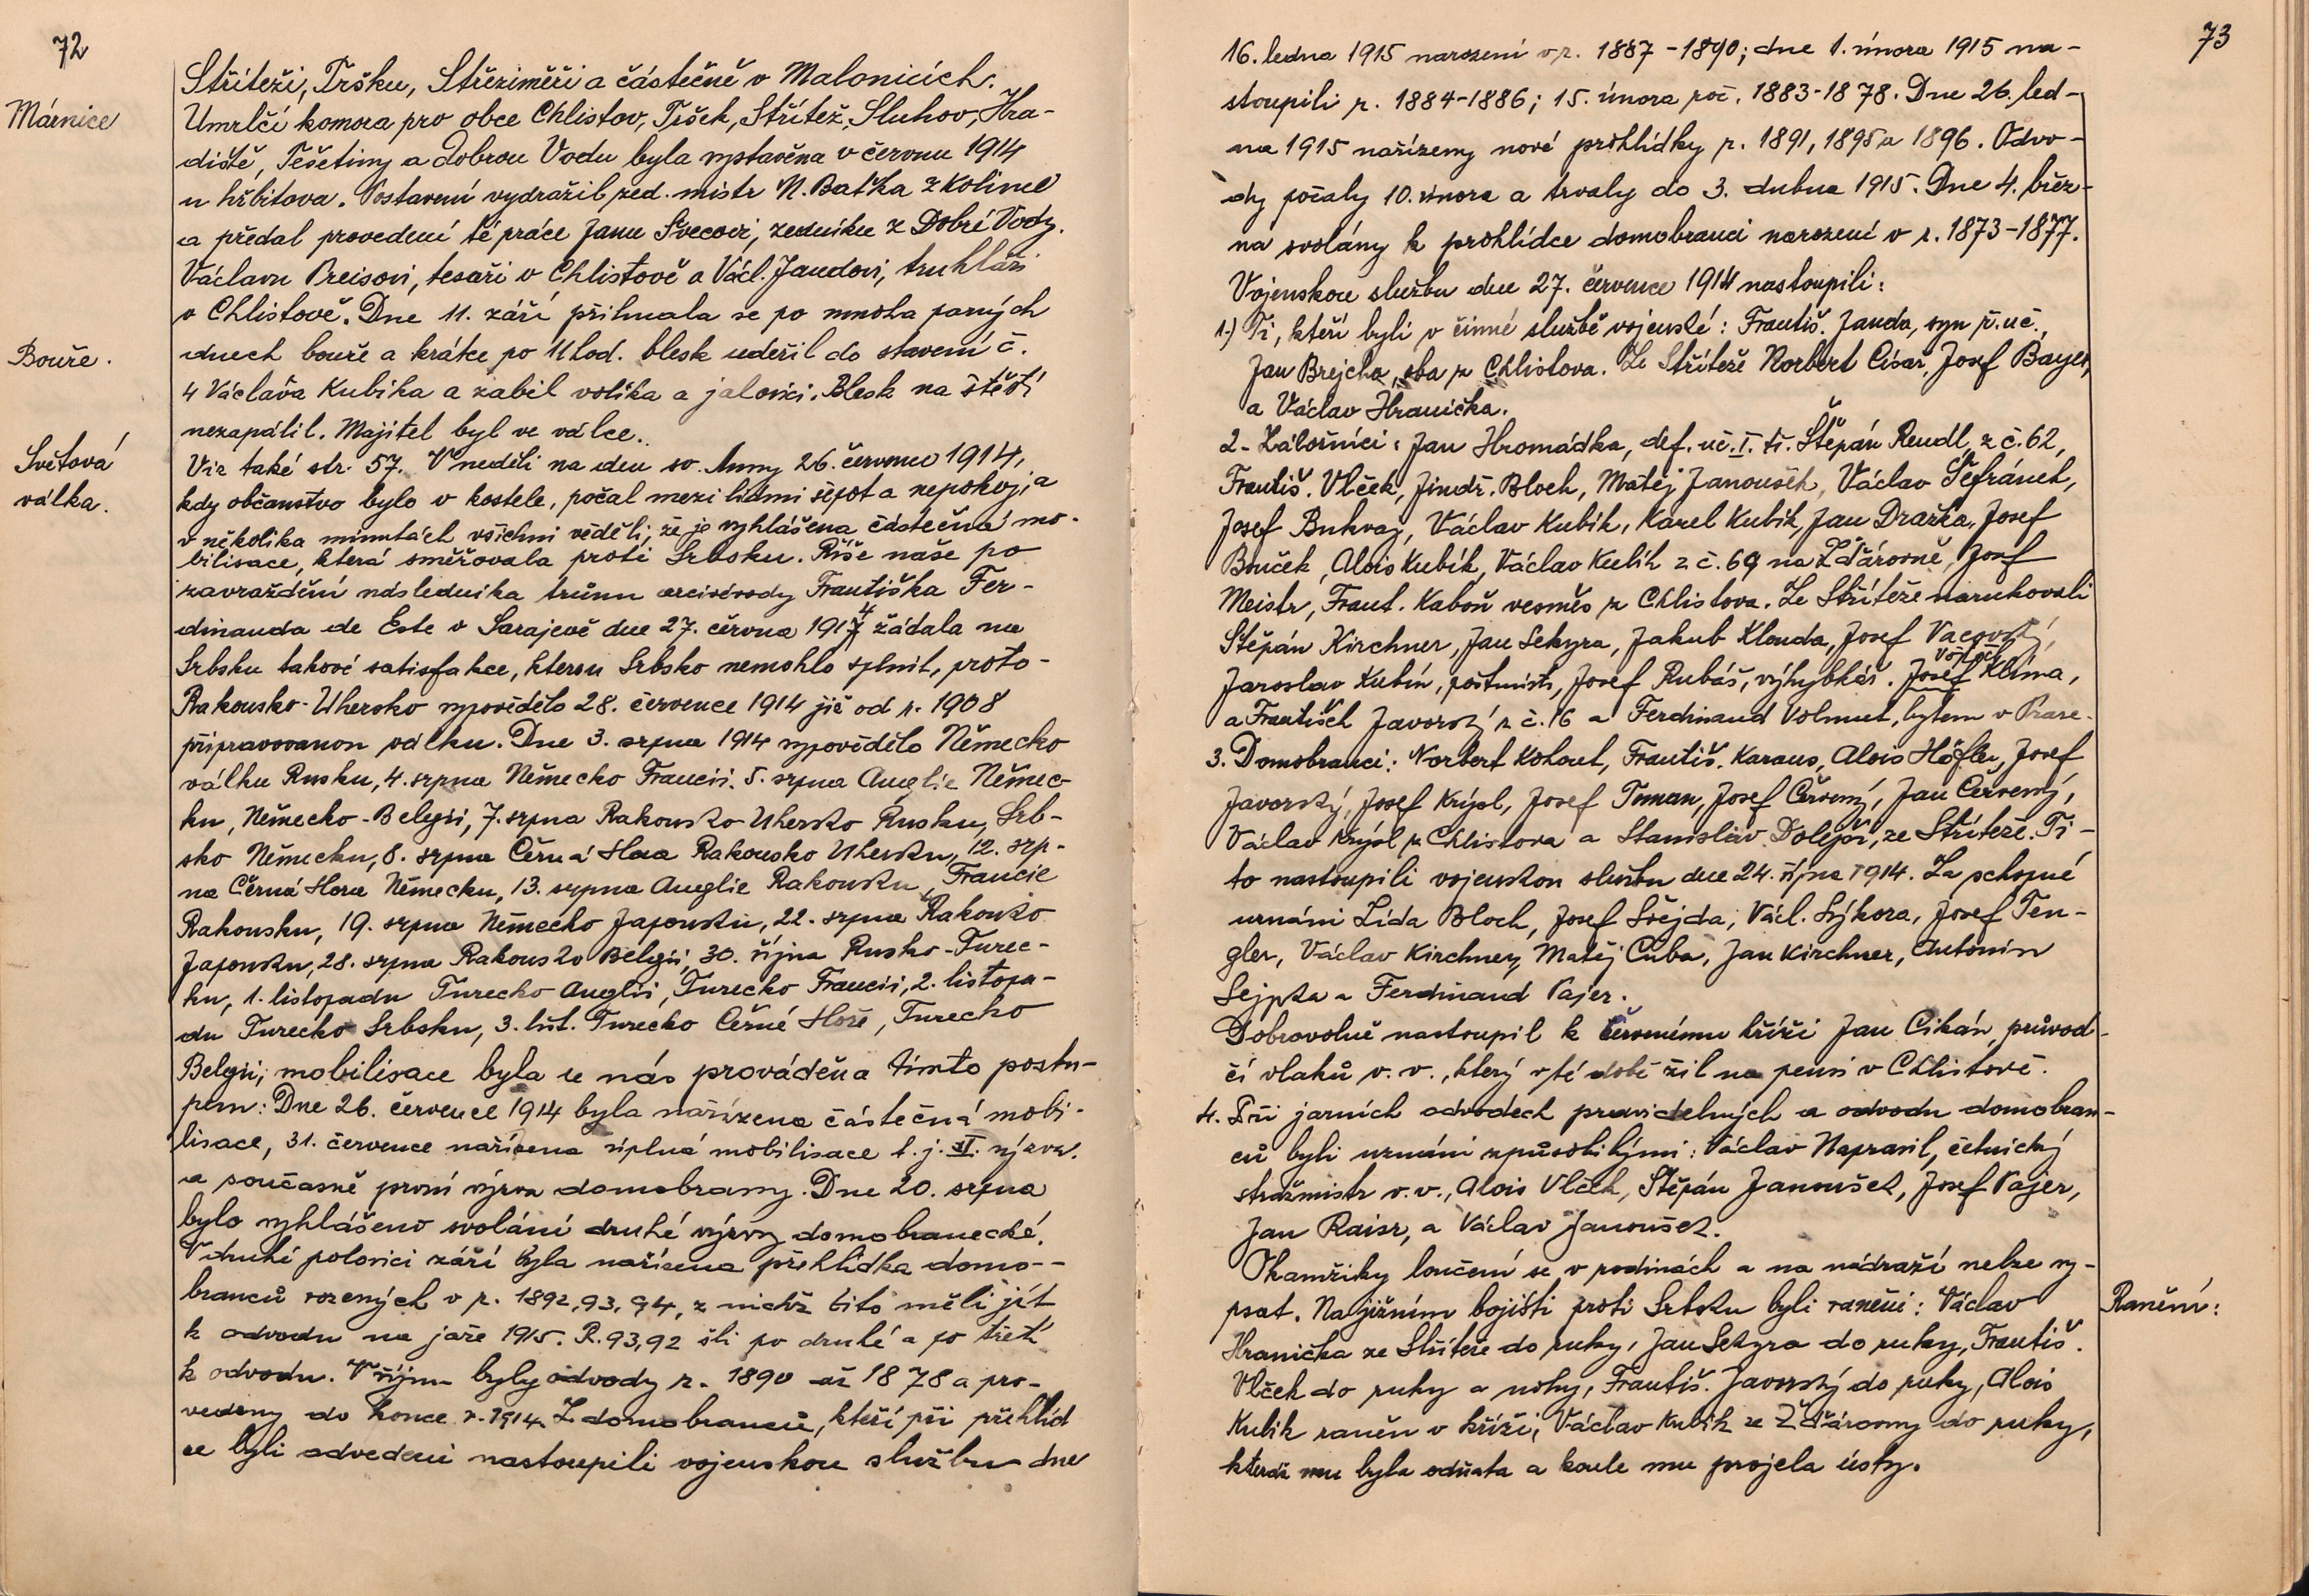 72
Stříteži, Tršku, Střeziměři a částečně v Malonicích.
Márnice
Umrlčí komora pro obce Chlistov, Tršek, Střítež, Sluhov, Hra-
diště, Tešetiny a Dobrou Vodu byla vystavěna v červnu 1914
u hřbitova. Postavení vydražil zed. mistr N. Baťka z Kolince
a předal provedení té práce Janu Švecovi, zedníku z Dobré Vody.
Václavu Preisovi, tesaři v Chlistově a Václ. Jandovi, truhláři
v Chlistově. Dne 11. září přihnala se po mnoha parných
Bouře.
dnech bouře a krátce po 11 hod. blesk udeřil do stavení č.
4 Václava Kubíka a zabil volíka a jalovici. Blesk na štěstí
nezapálil. Majitel byl ve válce.
Světová
válka.
Viz také str. 57. V neděli na den sv. Anny 26. července 1914,
kdy občanstvo bylo v kostele, počal mezi lidmi šepot a nepokoj, a
v několika minutách všichni věděli, že je vyhlášena částečná mo-
bilisace, která směřovala proti Srbsku. Říše naše po
zavraždění následníka trůnu arcivévody Františka Fer-
dinanda de Este v Sarajevě dne 27. června 1914 žádala na
Srbsku takové satisfakce, kterou Srbsko nemohlo splnit, proto-
Rakousko-Uhersko vypovědělo 28. července 1914 již od r. 1908
připravovanou válku. Dne 3. srpna 1914 vypovědělo Německo
válku Rusku, 4. srpna Německo Francii. 5. srpna Anglie Němec-
ku, Německo-Belgii, 7. srpna Rakousko-Uhersko Rusku, Srb-
sko Německu, 8. srpna Černá Hora Rakousko Uhersku, 12. srp-
na Černá Hora Německu, 13. srpna Anglie Rakousku, Francie
Rakousku, 19. srpna Německo Japonsku, 22. srpna Rakousko
Japonsku, 28. srpna Rakousko Belgii, 30. října Rusko-Turec-
ku, 1. listopadu Turecko Anglii, Turecko Francii, 2. listopa-
du Turecko Srbsku, 3. list. Turecko Černé Hoře, Turecko
Belgii; mobilisace byla u nás prováděna tímto postu-
pem: Dne 26. července 1914 byla nařízena částečná mobi-
lisace, 31. července nařízena úplná mobilisace t. j. II. výzva.
a současně první výzva domobrany. Dne 20. srpna
bylo vyhlášeno svolání druhé výzvy domobranecké.
V druhé polovici září byla nařízena přehlídka domo--
branců rozených v r. 1892, 93, 94, z nichž tito měli jít
k odvodu na jaře 1915. R. 93, 92 šli po druhé a po třetí
k odvodu. V říjnu byly odvody r. 1890 až 1878 a pro-
vedeny do konce r. 1914. Z domobranců, kteří při přehlíd
ce byli odvedeni nastoupili vojenskou službu dne
73
16. ledna 1915 narození v r. 1887-1890; dne 1. února 1915 na-
stoupili r. 1884-1886; 15. února roč. 1883-1878. Dne 26. led-
na 1915 nařízeny nové prohlídky r. 1891, 1895 a 1896. Odvo-
dy počaly 10. února a trvaly do 3. dubna 1915. Dne 4. břez-
na svolány k prohlídce domobranci narození v r. 1873-1877.
Vojenskou službu dne 27. července 1914 nastoupili:
1.) Ti, kteří byli v činné službě vojenské: Františ. Janda, syn ř. uč.,
Jan Brejcha, oba z Chlistova. Ze Stříteže Norbert Císař, Josef Bayer,
a Václav Hranička.
2- Záložníci: Jan Hromádka, def. uč. I. tř. Štěpán Rendl, z č. 62,
Františ. Vlček, Jindř. Bloch, Matěj Janoušek, Václav Šefránek,
Josef Bukvaj, Václav Kubík, Karel Kubík, Jan Dražka, Josef
Bouček, Alois Kubík, Václav Kubík z č. 69 na Žďárovně, Josef
Meistr, Frant. Kaboň vesměs z Chlistova. Ze Stříteže narukovali
Štěpán Kirchner, Jan Sekyra, Jakub Klouda, Josef Vacovský,
Jaroslav Kubín, poštmistr, Josef Rubáš, výhybkář. Josef Klíma,
a František Javorský z č. 16 a Ferdinand Volmut, bytem v Praze.
3. Domobranci: Norbert Kohout, Františ. Karaus, Alois Höfler, Josef
Javorský, Josef Krýsl, Josef Toman, Josef Červený, Jan Červený,
Václav Krýsl z Chlistova a Stanislav Dolejší, ze Stříteže. Ti-
to nastoupili vojenskou službu dne 24. října 1914. Za schopné
uznáni Zída Bloch, Josef Svejda, Václ. Sýkora, Josef Ten-
gler, Václav Kirchner, Matěj Cuba, Jan Kirchner, Antonín
Sejpka a Ferdinand Pajer.
Dobrovolně nastoupil k červenému kříži Jan Cikán, průvod-
čí vlaků v. v., který v té době žil na pensi v Chlistově.
4. Při jarních odvodech pravidelných a odvodu domobran-
ců byli uznáni způsobilými: Václav Napravil, četnický
strážmistr v. v., Alois Vlček, Štěpán Janoušek, Josef Pajer,
Jan Raisr, a Václav Janoušek.
Okamžiky loučení se v rodinách a na nádraží nelze vy-
Ranění:
psat. Na jižním bojišti proti Srbsku byli raněni: Václav
Hranička ze Stříteže do ruky, Jan Sekyra do ruky, Františ.
Vlček do ruky a nohy, Františ. Javorský do ruky, Alois
Kubík raněn v kříži, Václav Kubík ze Žďárovny do ruky,
kteráž mu byla odňata a koule mu projela ústy.